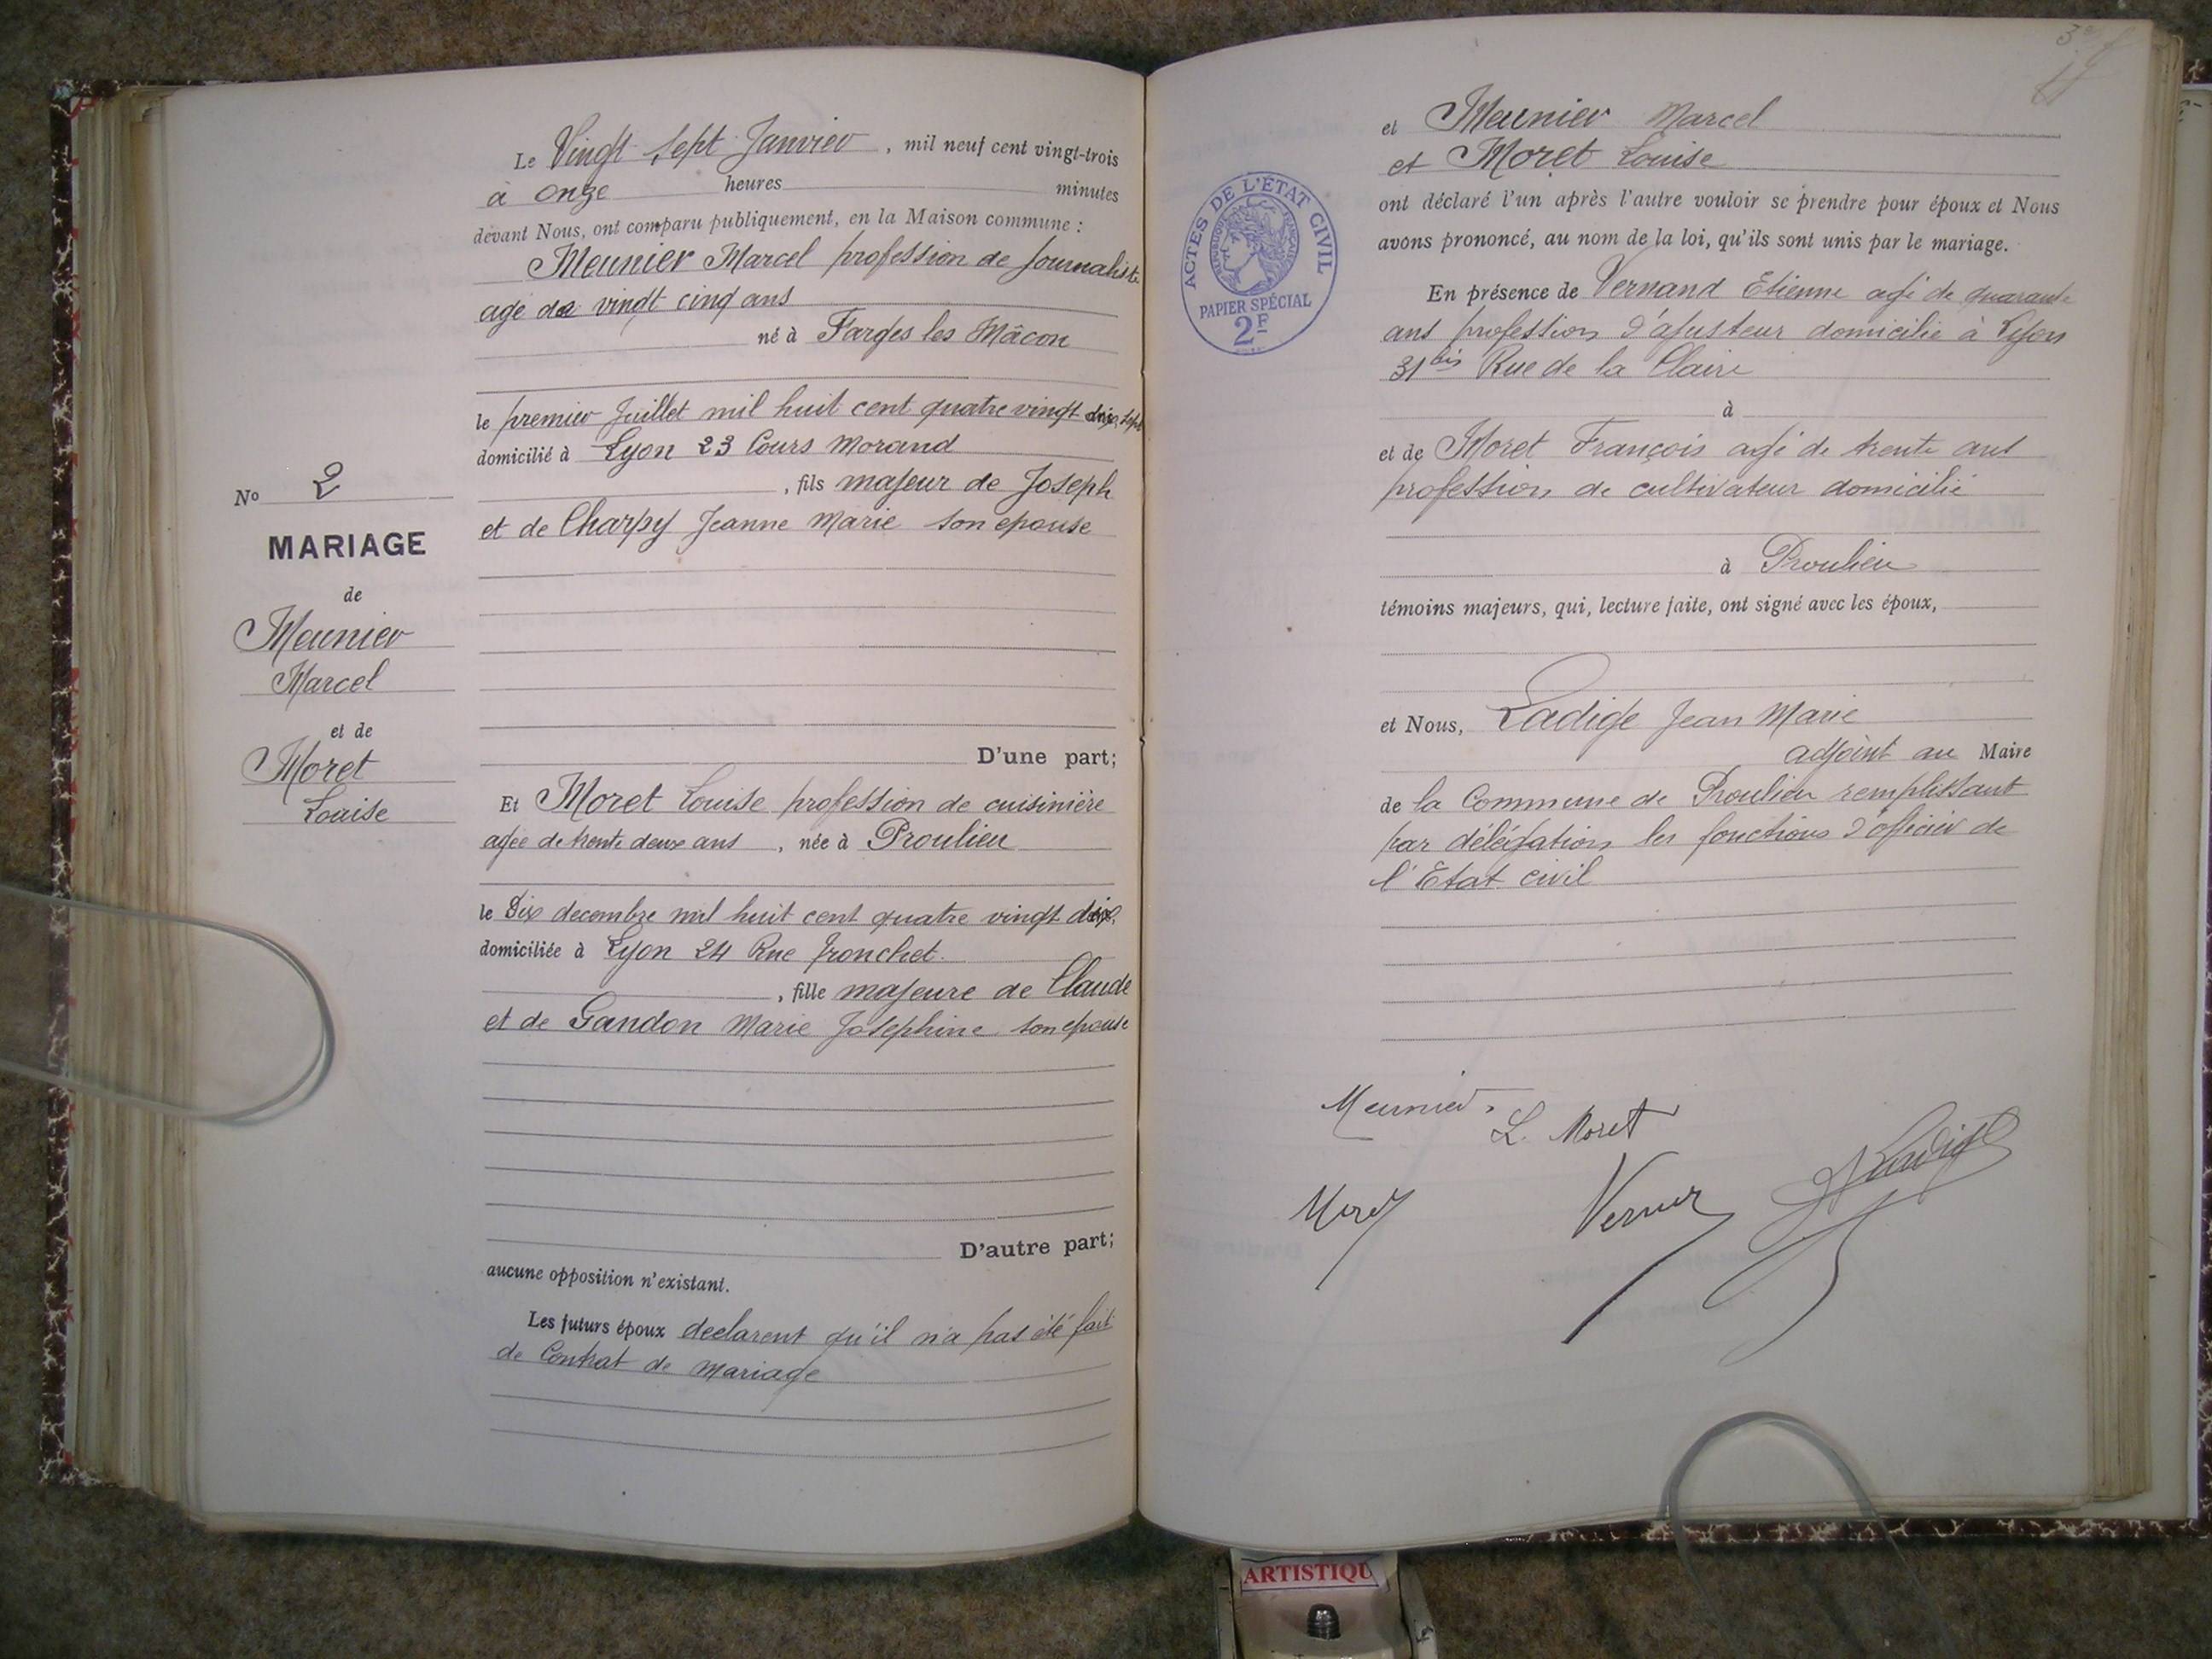 Le Vingt sept Janvier, mil neuf cent vingt-trois
à onze heures minutes
devant Nous, ont comparu publiquement, en la Maison commune :
Meunier Marcel profession de Journaliste
agé de vingt cinq ans
né à Farges les Mâcon
le premier Juillet mil huit cent quatre vingt dix sept
domicilié à Lyon 23 Cours Morand
, fils majeur de Joseph
et de Charpy Jeanne Marie son epouse
No 2
MARIAGE
de
Meunier
Marcel
et de
Moret
Louise
D'une part;
Et Moret Louise profession de cuisinière
agée de trente deux ans, née à Proulieu
le Dix decembre mil huit cent quatre vingt dix
domiciliée à Lyon 24 Rue Tronchet
, fille majeure de Claude
et de Gandon Marie Josephine son epouse
D'autre part;
aucune opposition n'existant.
Les futurs époux declarent qu'il n'a pas été fait
de Contrat de mariage
et Meunier Marcel
et Moret Louise
ont déclaré l'un après l'autre vouloir se prendre pour époux et Nous
avons prononcé, au nom de la loi, qu'ils sont unis par le mariage.
En présence de Vernand Etienne agé de quarante
ans profession d'ajusteur domicilié à Lyon
31 bis Rue de la Claire
à
et de Moret François agé de trente ans
profession de cultivateur domicilié
à Proulieu
témoins majeurs, qui, lecture faite, ont signé avec les époux,
et Nous, Ladige Jean Marie
adjoint au Maire
de la Commune de Proulieu remplissant
par délégation les fonctions d'officier de
l'Etat civil
Meunier
L. Moret
ACTES DE L'ÉTAT CIVIL
RÉPUBLIQUE FRANÇAISE
PAPIER SPÉCIAL
2F
ARTISTIQU